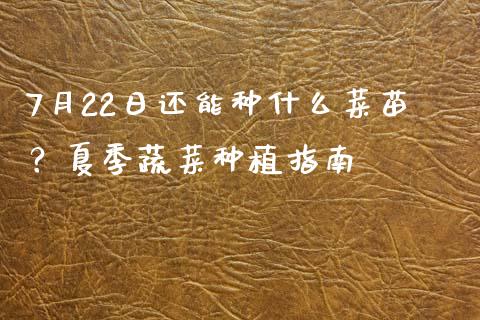 7月22日还能种什么菜苗
？夏季蔬菜种植指南